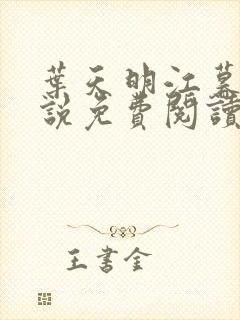 葉天明江慕
說免費閱讀
王書金